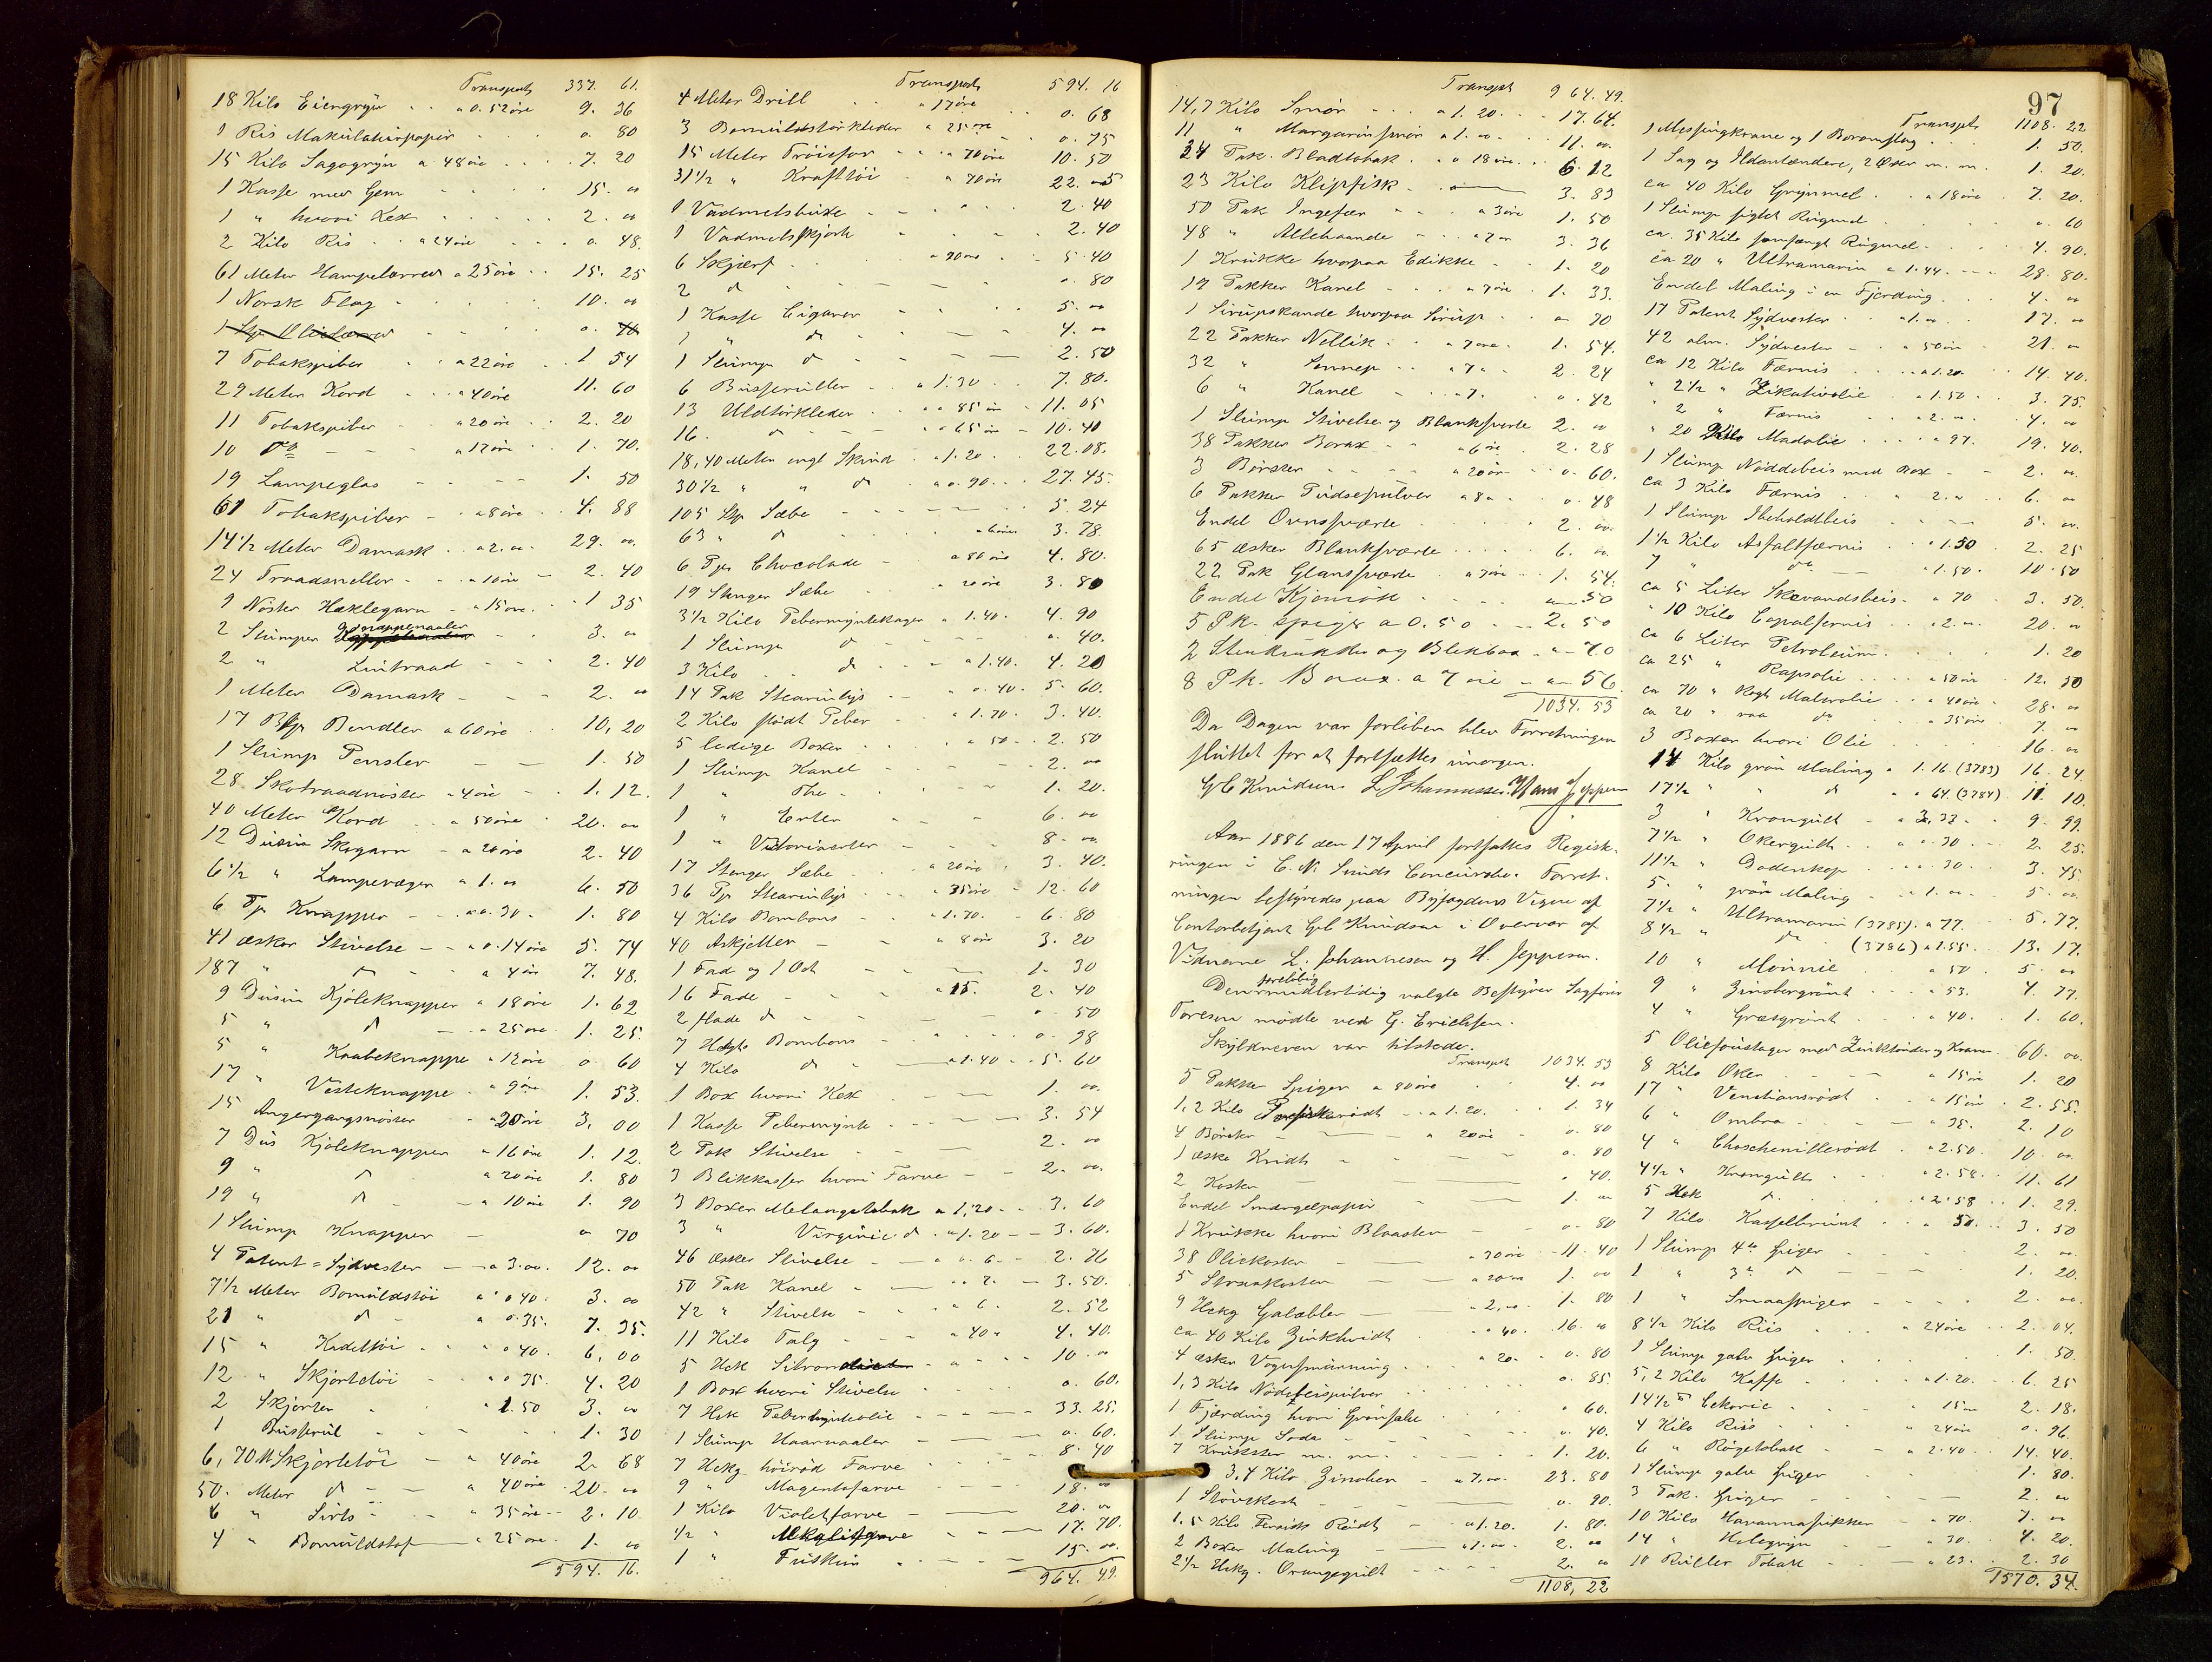 Transport 337. 61.
18 Kilo Eiengryn a 0.52 øre 9. 36
1 Ris Makulaturpapir 0. 80
15 Kilo Sagogryn a 48 øre 7. 20
1 Kasse med Gem 15. 00
1 " hvori Kex 2. 00
2 Kilo Ris a 24 øre 0. 48.
61 Meter Hampelærred a 25 øre 15. 25
1 Norsk Flag 10. 00
7 Tobakspiber a 22 øre 1 54
29 Meter Kord a 40 øre 11. 60
11 Tobakspiber a 20 øre 2. 20
10 do a 17 øre 1. 70.
19 Lampeglas 1. 50
61 Tobakspiber a 8 øre 4. 88
14 1/2 Meter Damask a 2.00 29. 00
24 Traadsneller a 10 øre 2. 40
9 Nøster Heklegarn a 15 øre 1 35
2 Slumper Knappenaaler 3. 00
2 " Lintraad 2. 40
1 Meter Damask 2. 00
17 Bsp Bendler a 60 øre 10, 20
1 Slump Pensler 1. 50
28 Skotraadnøster a 4 øre 1. 12.
40 Meter Kord a 50 øre 20. 00
12 Dusin Skogarn a 20 øre 2. 40
6 1/2 " Lampevæger a 1.00 6. 50
6 Ts Knapper a 0.30 1. 80
41 æsker Stivelse a 0.14 øre 5. 74
187 " d a 4 øre 7. 48.
9 Dusin Kjoleknapper a 18 øre 1. 62
5 " d a 25 øre 1. 25.
5 " Knabeknappe a 12 øre 0. 60
17 " Vesteknappe a 9 øre 1. 53.
15 Angergangsnøster a 20 øre 3. 00
7 Dus Kjoleknapper a 16 øre 1. 12.
9 " d a 20 øre 1. 80
19 " d a 10 øre 1. 90
1 Slump Knapper 0 70
4 Patent=Sydvester a 3.00. 12. 00
7 1/2 Meter Bomuldstøi a 0 40. 3. 00
21 " d a 0.35. 7. 35.
15 " Kadettøi a 0 40. 6. 00
12 " Skjortetøi a 0 35. 4. 20
2 Skjorter 1.50 3. 00
1 Busserul 1. 30
6,70 M Skjortetøi a 40 øre 2. 68
50. Meter d a 40 øre 20. 00
6 " Sirts a 35 øre 2. 10.
4 " Bomuldstof a 25 øre 1. 00
594. 16.
Transport 594. 16
4 Meter Drill a 17 øre 0. 68
3 Bomuldstørkleder a 25 øre 0. 75
15 Meter Trøiefor a 70 øre 10. 50
31 1/2 " Krafttøi a 70 øre 22. 05
1 Vadmelsbuxe 2. 40
1 Vadmelsskjort 2. 40
6 Skjærf a 90 øre 5. 40
2 d 0. 80
1 Kasse Cigarer 5. 00
1 " d 4. 00
1 Slump d 2. 50
6 Busseruller a 1.30 7. 80.
13 Uldtørkleder a 85 øre 11. 05
16. d a 65 øre 10. 40
18,40 Meter engl Skind a 1.20 22. 08.
30 1/2 " " d a 0.90 27. 45.
105 Stp Sæbe 5. 24
63 " d a 6 øre 3. 78.
6 Ps Chocolade a 80 øre 4. 80.
19 Stenger Sæbe a 20 øre 3. 80
3 1/2 Kilo Pebermyntekager a 1.40. 4. 90
1 Slump d 0. 40.
3 Kilo d a 1.40. 4. 20
14 Pak Stearinlys a 0.40. 5. 60.
2 Kilo stødt Peber a 1.70. 3. 40.
5 ledige Boxer a 50 2. 50
1 Slump Kanel 2. 00
1 " The 1. 20.
1 " Erter 6. 00
1 " Victoriaerter 8. 00
17 Stenger Sæbe a 20 øre 3. 40.
36 Ps Stearinlys a 35 øre 12. 60
4 Kilo Bombons a 1.70. 6. 80
40 Askjetter a 8 øre 3. 20
1 Fad og 1 1. 30
16 Fade a 15. 2. 40
2 flade d 0. 50
7 Hekto Bombons 0. 98
4 Kilo d a 1.40 5. 60
1 Box hvori Kex 1. 00.
1 Kasse Pebermynte 3. 54
2 Pak Stivelse 2. 00
3 Blikkasser hvori Farve 2. 00.
3 Boxer Melangetobak a 1,20 3. 60
3 " Virginie d a 1.20 3. 60.
46 æsker Stivelse a 0. 6 2. 76
50 Pak Kanel a 7. 3. 50.
42 " Stivelse a 6. 2. 52
11 Kilo Talg a 40 4. 40.
5 Hek Sitron 10. 00
1 Box hvori Stivelse 0. 60.
7 Hek Pebermynteolie 33. 25.
1 Slump Haarnaaler 0. 60.
7 Hekg høirød Farve 8. 40
9 " Magentafarve 18. 00
1 Kilo Violetfarve 20. 00
1/2 " Alkalifarve 17. 70.
1 " Fuskin 15. 00.
964. 49.
97
Transpt 964. 49.
14,7 Kilo Smør a 1.20. 17. 64.
11 " Margarinsmør a 1.00. 11. 00.
34 Pak. Bladtobak a 18 øre 6. 12
23 Kilo Klipfisk 3. 83
50 Pak Ingefær a 3 øre 1. 50
48 " Allehaande a 7 øre 3. 36
1 Krukke hvorpaa Edikke 1. 20
19 Pakker Kanel a 7 øre 1. 33.
1 Sirupskande hvorpaa Sirup 0 70
22 Pakker Nellik a 7 øre 1. 54.
32 " Sennep a 7 2. 24
6 " Kanel a 7. 0. 42
1 Slump Stivelse og Blanksverte 2. 00
38 Pakker Borax a 6 øre 2. 28
3 Børster a 20 øre 0. 60.
6 Pakker Pudsepulver a 8 0. 48
Endel Ovnsværte 2. 00.
65 æsker Blanksværte 6. 00.
22 Pak Glanssværte a 7 øre 1. 54.
Endel Kjønrøk 0 50
5 Pk. Spiger a 0,50 2. 50
2 Stenkrukker og Blikbox 0 70
8 Pk. Borax a 7 øre 0 56.
1034. 53
Da Dagen var forliben blev Forretningen
sluttet for at fortsættes imorgen.
Gbl Knudsen L Johannessen Hans Jeppesen
Aar 1886 den 17 April fortsattes Regist-
ringen i C. N. Sunds Concursbo. Forret-
ningen bestyredes paa Byfogdens Vegne af
Contorbetjent Gbl Knudsen i Overvær af
Vidnerne L. Johannesen og H. Jeppesen.
foreløbig
Den midlertidig valgte Bestyrer Sagfører
Foresen mødte ved G. Erichsen.
Skyldneren var tilstede.
Transpt 1034. 53
5 Pakke Spiger a 80 øre 4. 00
1,2 Kilo Persiskrødt a 1.20. 1. 34
4 Børster a 20 øre 0. 80
1 æske Kridt 0. 80
2 Koster 0 40.
Endel Smergelpapir 1. 00
1 Krukke hvori Blaasten 0. 80
38 Oliekoster a 30 øre 11. 40
5 Straakoster a 20 øre 1. 00
9 Hekg Galæbler a 2,00 1. 80
ca 40 Kilo Zinkhvidt a 40. 16. 00
4 æsker Vognsmøring a 20. 0. 80
1,3 Kilo Nødebeispulver 0. 85.
1 Fjærding hvori Grønsæbe 0 60.
1 Slump Soda 0. 40.
7 Krukker m. m. 1. 20.
3,4 Kilo Zinober a 7,00. 23. 80
1 Støvekost 0. 90.
1.5 Kilo Persisk Rødt a 1.20. 1. 80.
2 Boxer Maling a 1.00. 2. 00
2 1/2 Hekg. Orangegult 2. 00
1108, 22
Transpt 1108. 22
1 Messingkrane og 1 Boromslag 1. 50.
1 Sag og Ildantændere, 2 Øxer m. m. 1. 20.
ca 40 Kilo Grynmel a 18 øre 7. 20.
1 Slump sigtet Rugmel 0. 60
ca. 35 Kilo samfængt Rugmel 4. 90.
ca 20 " Ultramarin a 1.44. 28. 80.
Endel Maling i en Fjerding 4. 00
17 Patent Sydvester a 1.00 17. 00
42 alm. Sydvester a 50 øre 21. 00
ca 12 Kilo Færnis a 1.20 14. 40.
" 2 1/2 " Zikativolie a 1.50 3. 75.
" 2 " Færnis a 2.00. 4. 00
" 20 Kilo Madolie a 97. 19. 40.
1 Slump Nøddebeis med Box 2. 00.
ca 3 Kilo Færnis a 2.00 6. 00
1 Slump Ibeholdtbeis 5. 00.
1 1/2 Kilo Asfaltfærnis a 1.50 2. 25
7 " do a 1.50. 10. 50
ca 5 Liter Skevandsbeis a 70 3. 50.
" 10 Kilo Copalfernis a 2.00. 20. 00
ca 6 Liter Petroleum 1. 20
ca 25 " Rapsolie a 50 øre 12. 50
ca 70 " Kogt Malerolie a 40 øre 28. 00
ca 20 " raa do a 35 øre 7. 00
3 Boxer hvori Olie 16. 00
14 Kilo grøn Maling a 1.16. (3783) 16. 24.
17 1/2 " " d a 64. (3784). 11. 10.
3 " Krongult a 3,33. 9. 99.
7 1/2 " Okergult a 0.30 2. 25.
11 1/2 " Dødenkop a 30. 3. 45.
5. " grøn Maling a 1.00. 5. 00.
7 1/2 " Ultramarin (3785). a 77. 5. 77.
8 1/2 " do (3786) a 1.55. 13. 17.
10 " Mønnie a 50 5. 00
9 " Zinobergrønt a 53. 4. 77.
4 " Græsgrønt a 40. 1. 60.
5 Oliefoustager med Zinktønder og Kraner. 60. 00.
8 Kilo Oker a 15 øre 1. 20
17 " Venetiansrødt a 15 øre 2. 55.
6 " Ombra a 35. 2. 10
4 " Choschenillerødt a 2.50. 10. 00.
4 1/2 " Krongult a 2.58. 11. 61
5 Hek d. a 2.58 1. 29.
7 Kilo Kasselbrunt a 50. 3. 50
1 Slump 4" Spiger 2. 00.
1 " 3" d 1. 20.
1 " Smaaspiger 2. 00.
8 1/2 Kilo Riis a 24 øre 2. 04.
1 Slump galv Spiger 1. 50.
5,2 Kilo Kaffe a 1.20. 6. 25
14 1/2 lb Cekorie a 15 øre 2. 18.
4 Kilo Ris a 24 øre 0. 96.
6 " Røgetobak a 2.40 14. 40.
1 Slump galv Spiger 1. 80.
3 Pak. Spiger 2. 00
10 Kilo Havannasukker a 70. 7. 00
14 " Helegryn a 30. 4. 20.
10 Ruller Tobak a 23. 2. 30
1570. 34.